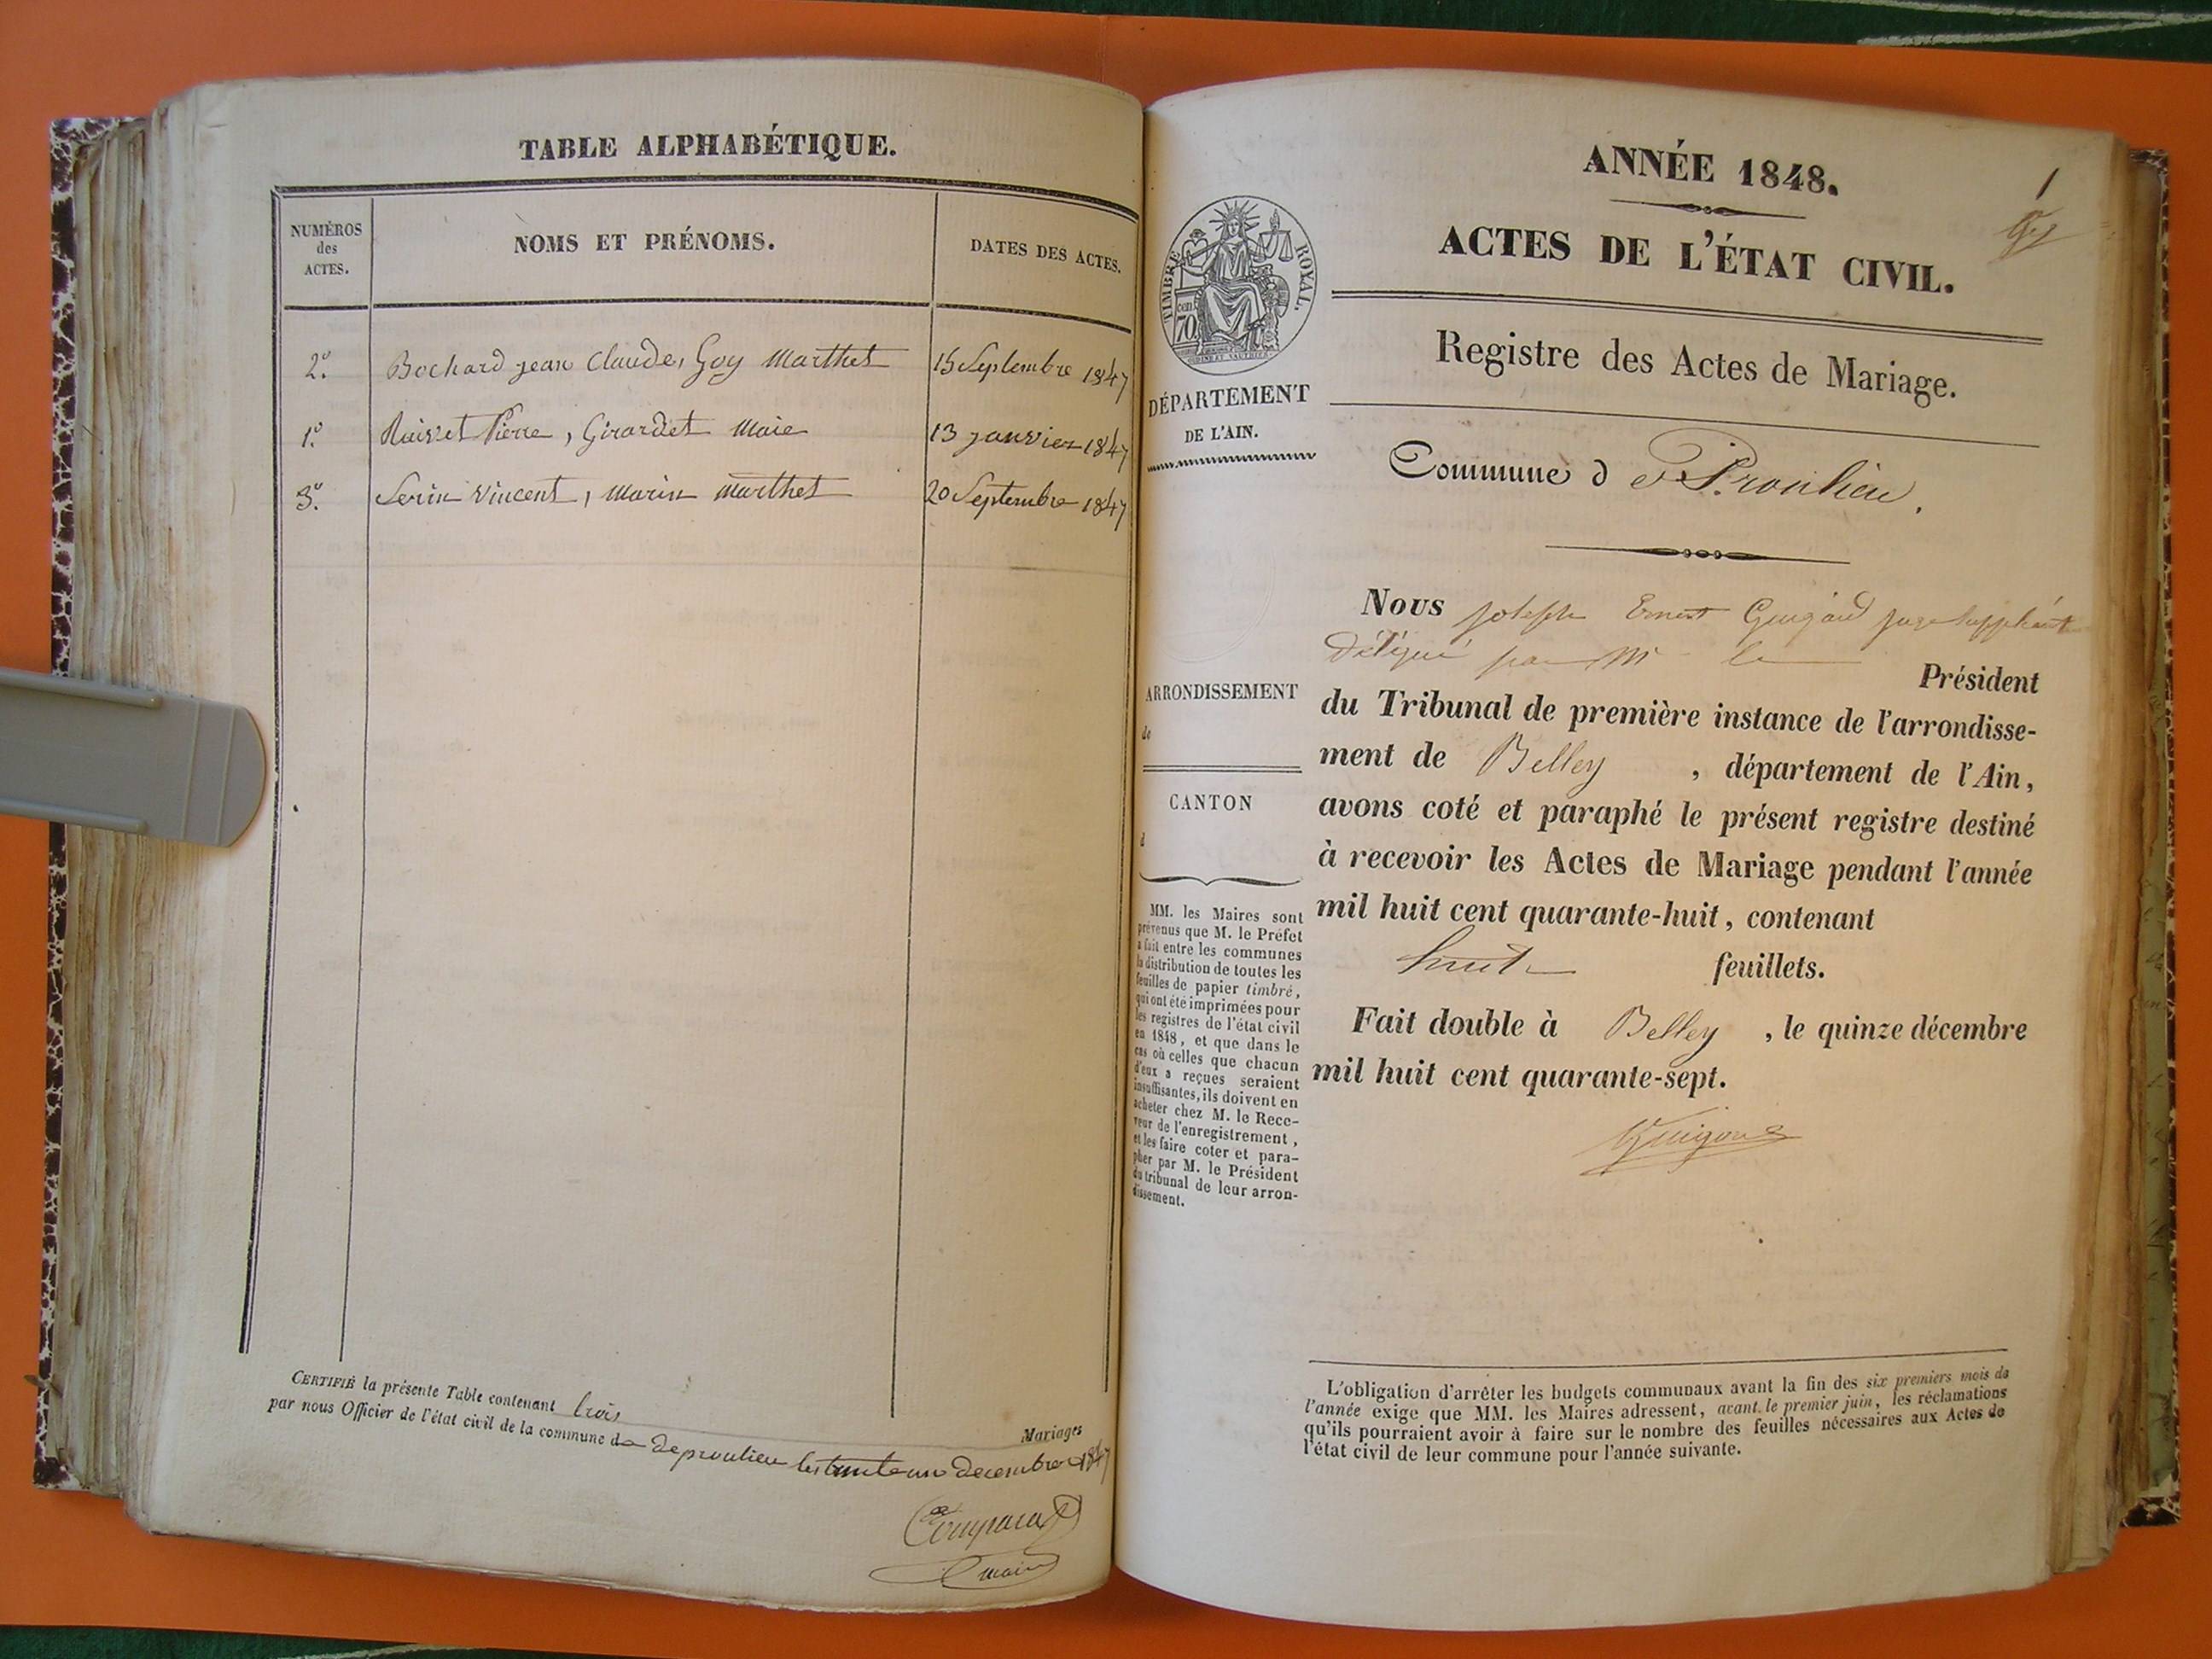 TABLE ALPHABÉTIQUE.
NUMÉROS
des
ACTES.
NOMS ET PRÉNOMS.
DATES DES ACTES.
2.° Bochard jean Claude, Goy Marthet 15 Septembre 1847
1.° Pierre, Girardet Marie 13 janvier 1847
3.° Serin Vincent, Marin Marthet 20 Septembre 1847
CERTIFIÉ la présente Table contenant trois Mariages
par nous Officier de l'état civil de la commune de de proulieu le trente un decembre 1847
maire
ANNÉE 1848.
1
ACTES DE L'ÉTAT CIVIL.
TIMBRE ROYAL.
cen. 70
Registre des Actes de Mariage.
DÉPARTEMENT
DE L'AIN.
Commune de Proulieu.
Nous joseph Ernest juge suppléant
délégué par Mr le Président
ARRONDISSEMENT
de
du Tribunal de première instance de l'arrondisse-
ment de Belley, département de l'Ain,
CANTON
d
avons coté et paraphé le présent registre destiné
à recevoir les Actes de Mariage pendant l'année
mil huit cent quarante-huit, contenant
huit feuillets.
Fait double à Belley, le quinze décembre
mil huit cent quarante-sept.
MM. les Maires sont
prévenus que M. le Préfet
a fait entre les communes
la distribution de toutes les
feuilles de papier timbré,
qui ont été imprimées pour
les registres de l'état civil
en 1848, et que dans le
cas où celles que chacun
d'eux a reçues seraient
insuffisantes, ils doivent en
acheter chez M. le Rece-
veur de l'enregistrement,
et les faire coter et para-
pher par M. le Président
du tribunal de leur arron-
dissement.
L'obligation d'arrêter les budgets communaux avant la fin des six premiers mois de
l'année exige que MM. les Maires adressent, avant le premier juin, les réclamations
qu'ils pourraient avoir à faire sur le nombre des feuilles nécessaires aux Actes de
l'état civil de leur commune pour l'année suivante.